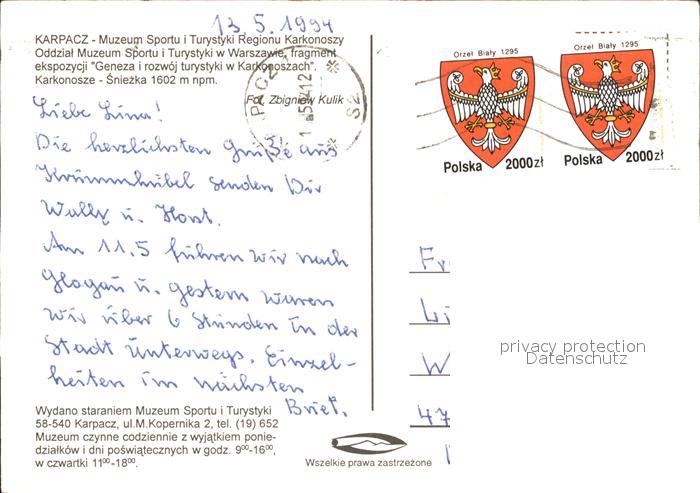 13.5.1994
KARPACZ - Muzeum Sportu i Turystyki Regionu Karkonoszy
Oddział Muzeum Sportu i Turystyki w Warszawie, fragment
ekspozycji "Geneza i rozwój turystyki w Karkonoszach".
Karkonosze - Śnieżka 1602 m npm.
Fot. Zbigniew Kulik
Liebe Lina!
Die herzlichsten Grüße aus
Krummhübel senden Dir
Wally u. Horst.
Am 11.5 fuhren wir nach
Glogau u. gestern waren
wir über 6 Stunden in der
Stadt unterwegs. Einzel-
heiten im nächsten
Brief.
Wydano staraniem Muzeum Sportu i Turystyki
58-540 Karpacz, ul.M.Kopernika 2, tel. (19) 652
Muzeum czynne codziennie z wyjątkiem ponie-
działków i dni poświątecznych w godz. 9⁰⁰-16⁰⁰,
w czwartki 11⁰⁰-18⁰⁰.
Wszelkie prawa zastrzeżone
Orzeł Biały 1295
Polska 2000 zł
Orzeł Biały 1295
Polska 2000 zł
Fr
Li
W
47
privacy protection
Datenschutz